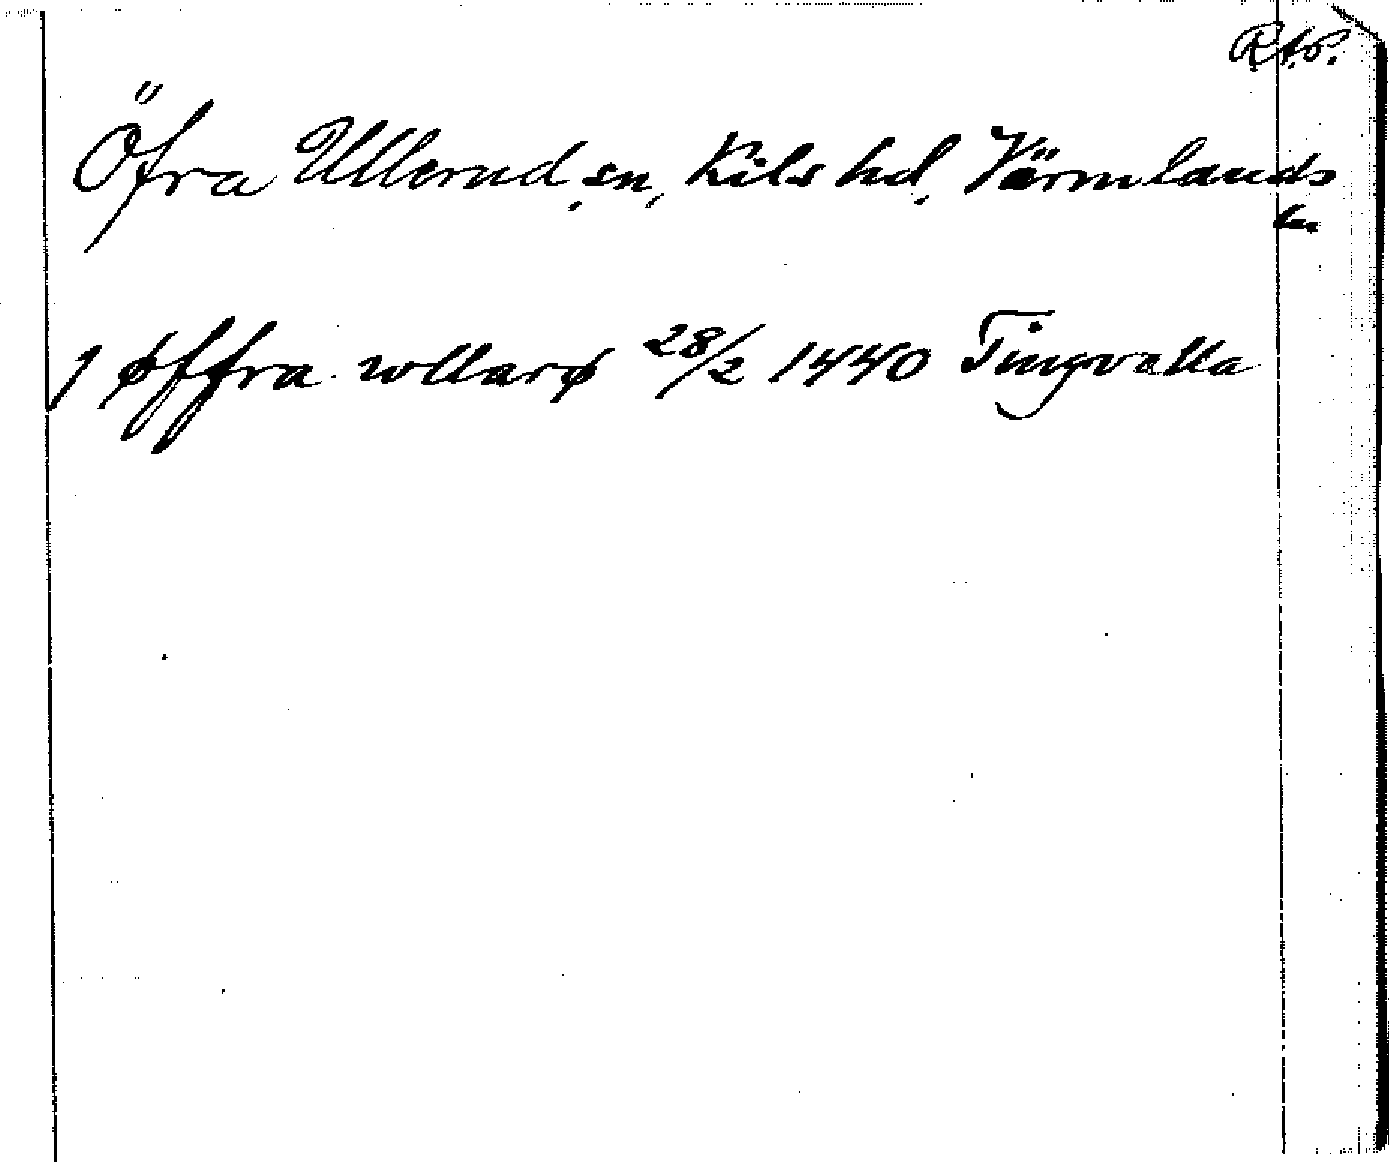 R.A.P.
Öfra Ullerud sn, Kils hd. Värmlands
ln
J øffra wllarø 28/2 1440 Tingvalla